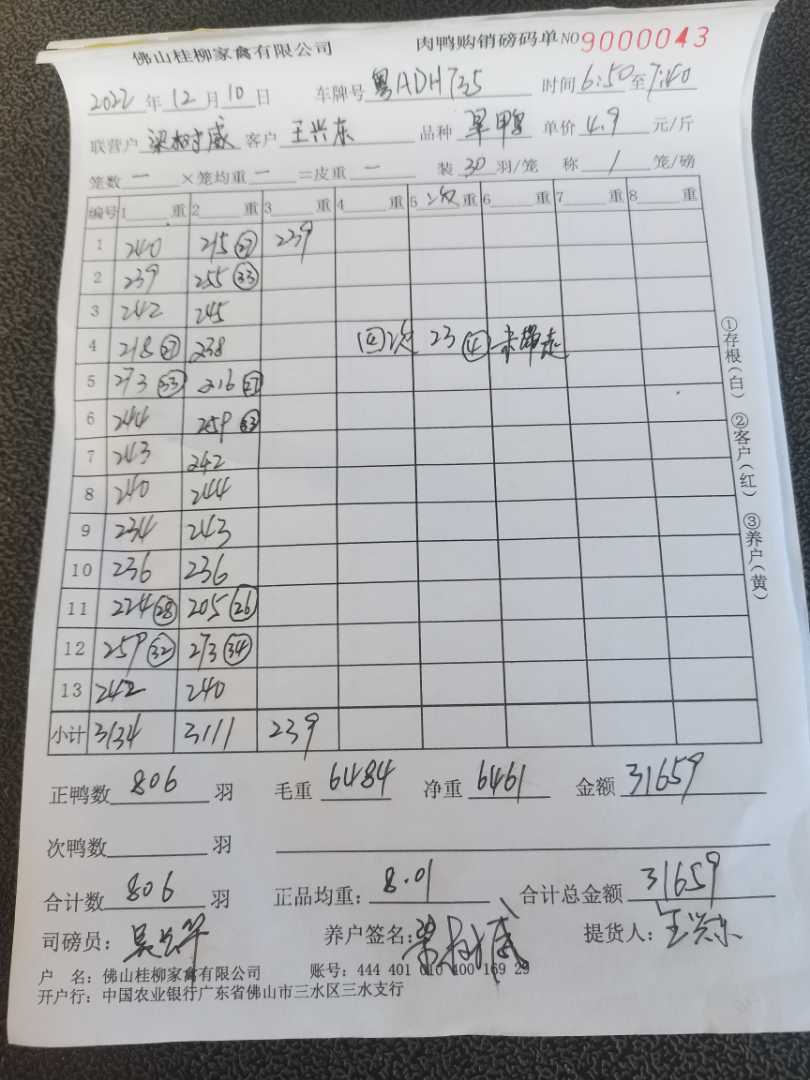 佛山桂柳家禽有限公司 肉鸭购销磅码单 NO 9000043
2022年12月10日 车牌号 粤ADH735 时间 6:50至7:40
联营户 客户 王兴东 品种 单价 4.9 元/斤
笼数 一 ×笼均重 一 =皮重 一 装 30 羽/笼 称 1 笼/磅
编号 1 重 2 重 3 重 4 重 5 重 6 重 7 重 8 重
1 240 215(27) 239
2 239 255(33)
3 242 245
4 218(27) 238 回次 23(4) 未带走
5 273(33) 216(27)
6 244 259(33)
7 243 242
8 240 244
9 234 243
10 236 236
11 224(28) 205(26)
12 259(32) 273(34)
13 242 240
小计 3134 3111 239
正鸭数 806 羽 毛重 6484 净重 6461 金额 31659
次鸭数 羽
合计数 806 羽 正品均重: 8.01 合计总金额 31659
司磅员: 养户签名: 提货人: 王兴东
户 名: 佛山桂柳家禽有限公司 账号: 444 401 010 400 169 29
开户行: 中国农业银行广东省佛山市三水区三水支行
①存根(白) ②客户(红) ③养户(黄)